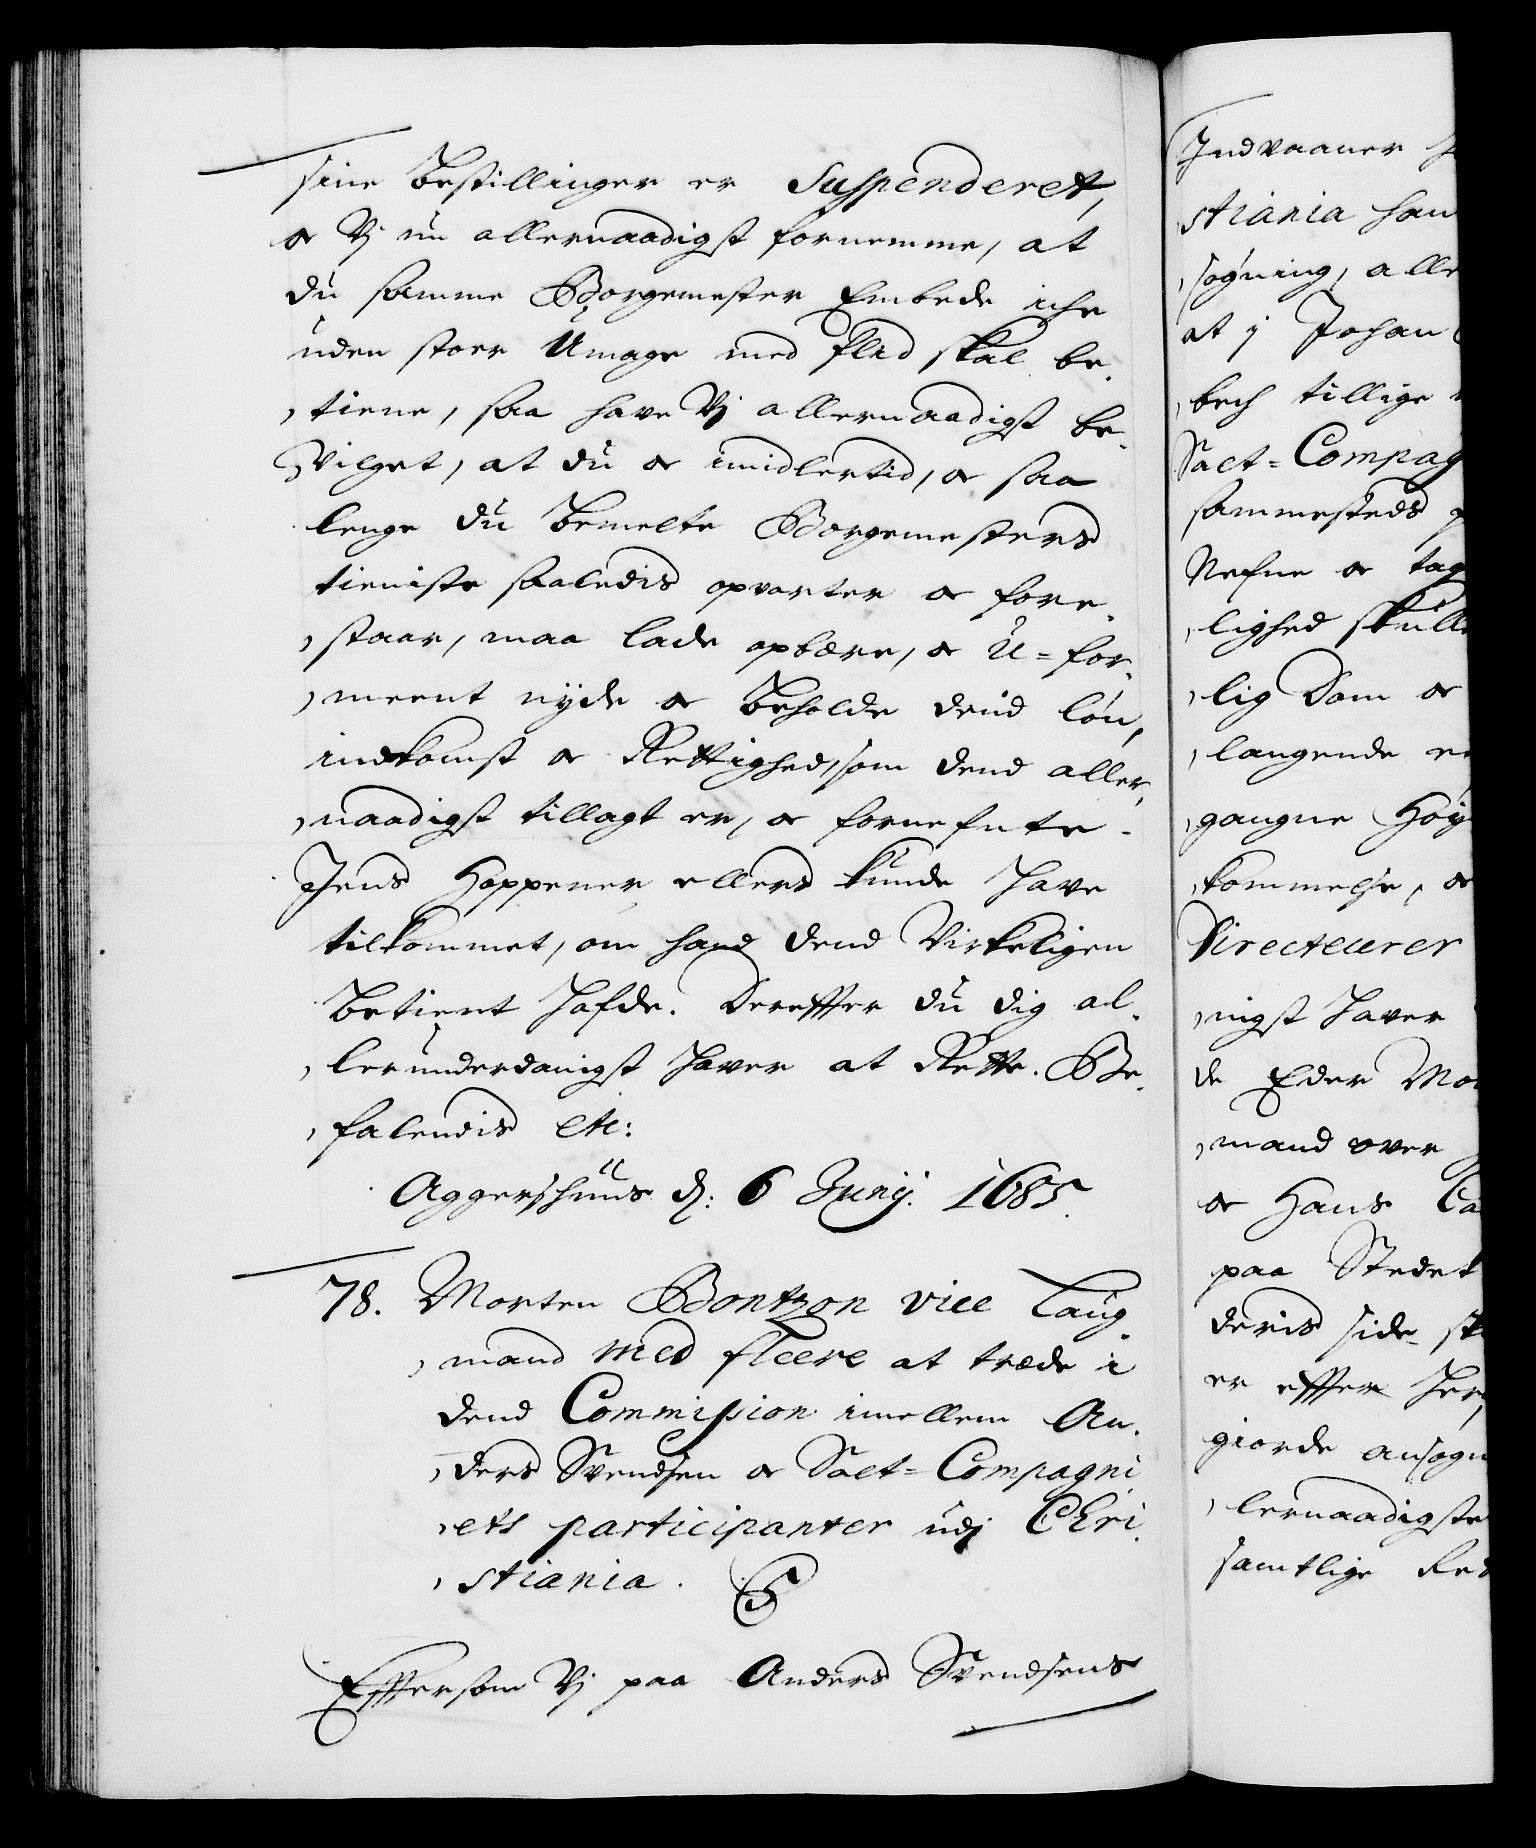 sine Bestillinger er Suspenderet,
oc Vj nu allernaadigst fornemme, at
du samme Borgemester Embede iche
uden stoer Umage med flid skal be-
tiene, saa have Vj allernaadigst be-
vilget, at du oc imidlertid, oc saa
lenge du bemelte Borgemesters
tieniste saaledis opvarter oc fore-
staar, maa lade opbære, oc U=for-
meent nyde oc beholde dend løn,
indkomst oc Rettighed, som dend aller-
naadigst tillagt er, oc fornefnte
Jens Hoppener ellers kunde have
tilkommet, om hand dend Virkeligen
betient hafde. Derefter du dig al-
lerunderdanigst haver at Rette. Be-
falendis etc:
Aggershuus d: 6 Junij. 1685.
78. Morten Bontzon vice Laug-
mand med fleere at træde i
dend Commission imellem An-
ders Svendsen oc Salt=Compagni
ets participanter udj Chri-
stiania.
Eftersom Vj paa Anders Svendsens
Indvaaner
stiania han
søgning, alle
at j Johan
bech tillige
Salt=Compag
sammesteds
Nefne oc tag
lighed skulle
lig Dom oc
langende
gangne Høy
kommelse, oc
Directeurer
nigst haver
de Eder Mo
mand over
oc Hans Ca
paa Stedet
deris side sk
er efter her
giorde ansøgn
lernaadigste
samtlige Red